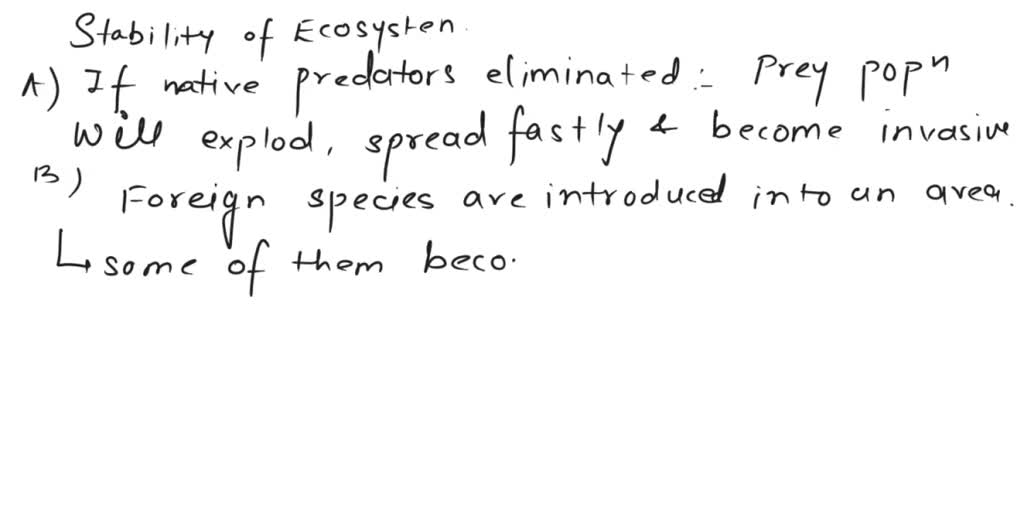 Stability of Ecosysten.
A) If native predators eliminated :- Prey popⁿ
will explod, spread fastly & become invasive
B) Foreign species are introduced into an area.
↳ some of them beco.